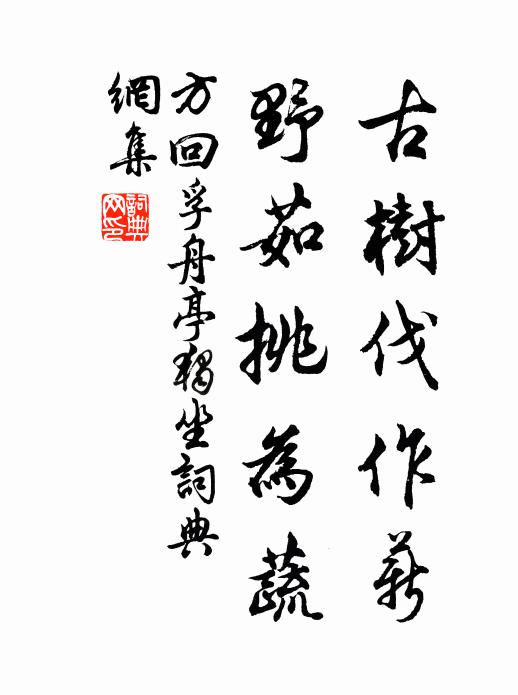 古樹伐作薪
野茹挑為蔬
方回孚舟亭獨坐詞典
網集
詞典網印